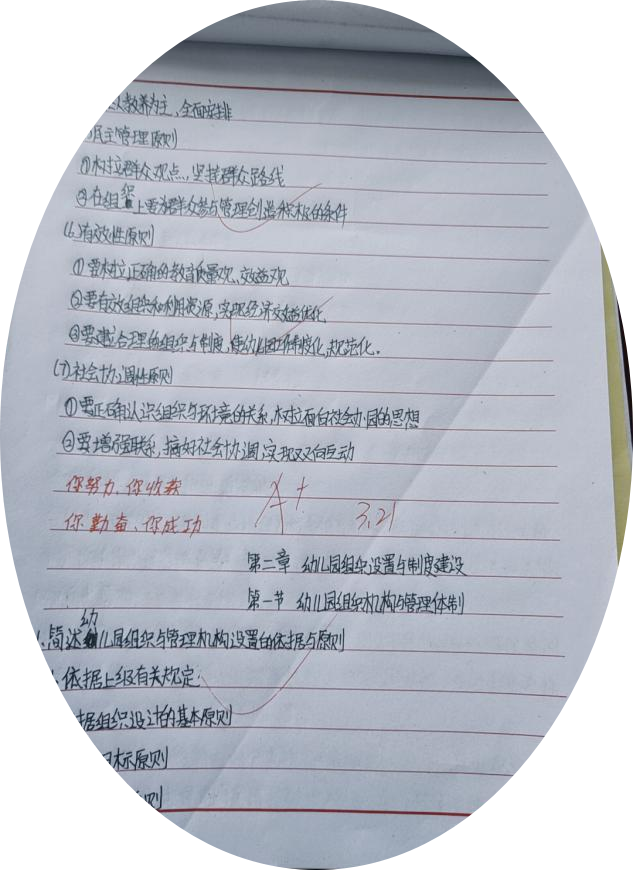 教养为主，全面安排
民主管理原则
①树立群众观点，坚持群众路线
②在组织上要为群众参与管理创造积极的条件
(6)有效性原则
①要树立正确的教育质量观、效益观
②要有效组织和利用资源，实现经济效益优化
③要建立合理的组织与制度，使幼儿园工作制度化，规范化。
(7)社会协调性原则
①要正确认识组织与环境的关系，树立面向社会办园的思想
②要增强联系，搞好社会协调，实现双向互动
你努力、你收获 A+ 3.21
你勤奋、你成功
第二章 幼儿园组织设置与制度建设
第一节 幼儿园组织机构与管理体制
幼
1.简述儿园组织与管理机构设置的依据与原则
依据上级有关规定
据组织设计的基本原则
目标原则
则